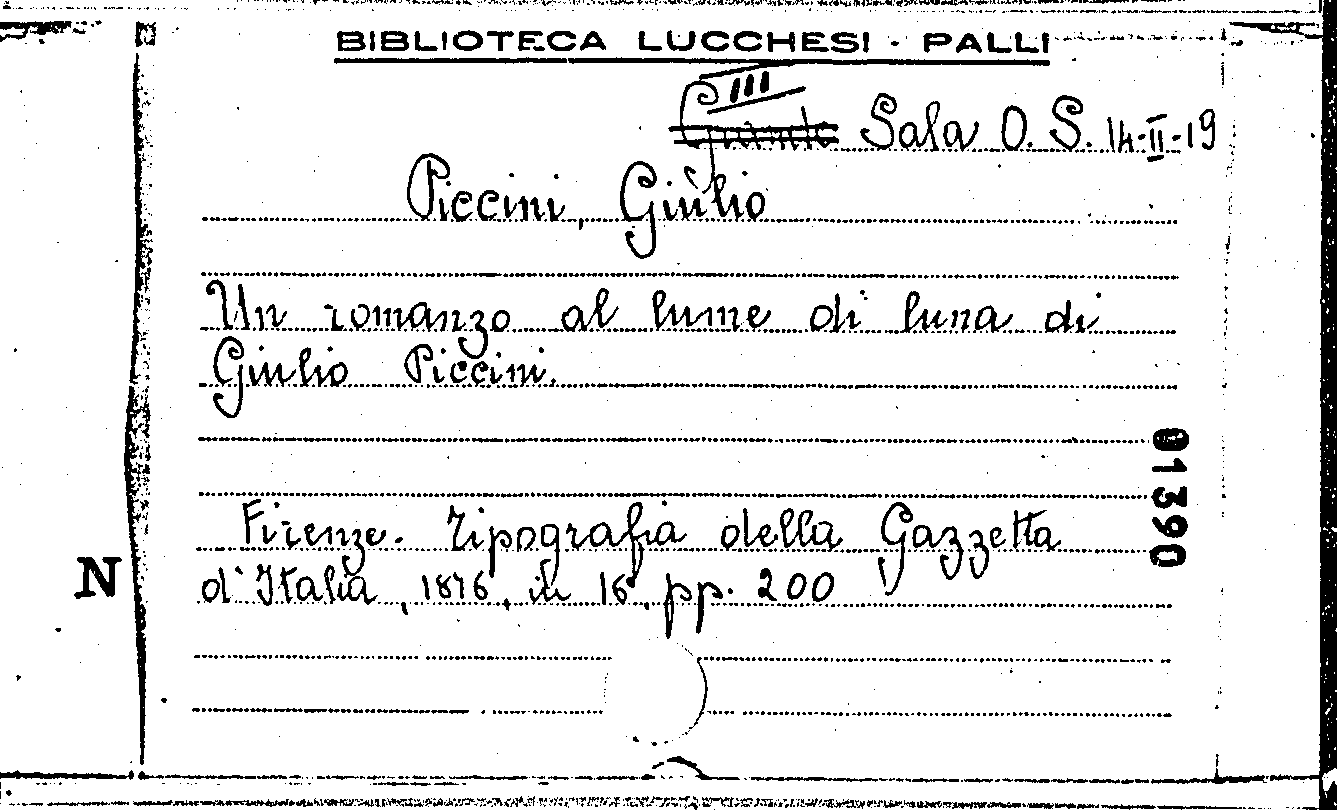 BIBLIOTECA LUCCHESI - PALLI
III
Grande Sala O. S. 14-II-19
Piccini, Giulio
Un romanzo al lume di luna di
Giulio Piccini.
01390
Firenze. Tipografia della Gazzetta
d'Italia, 1876, in 16°, pp. 200
N